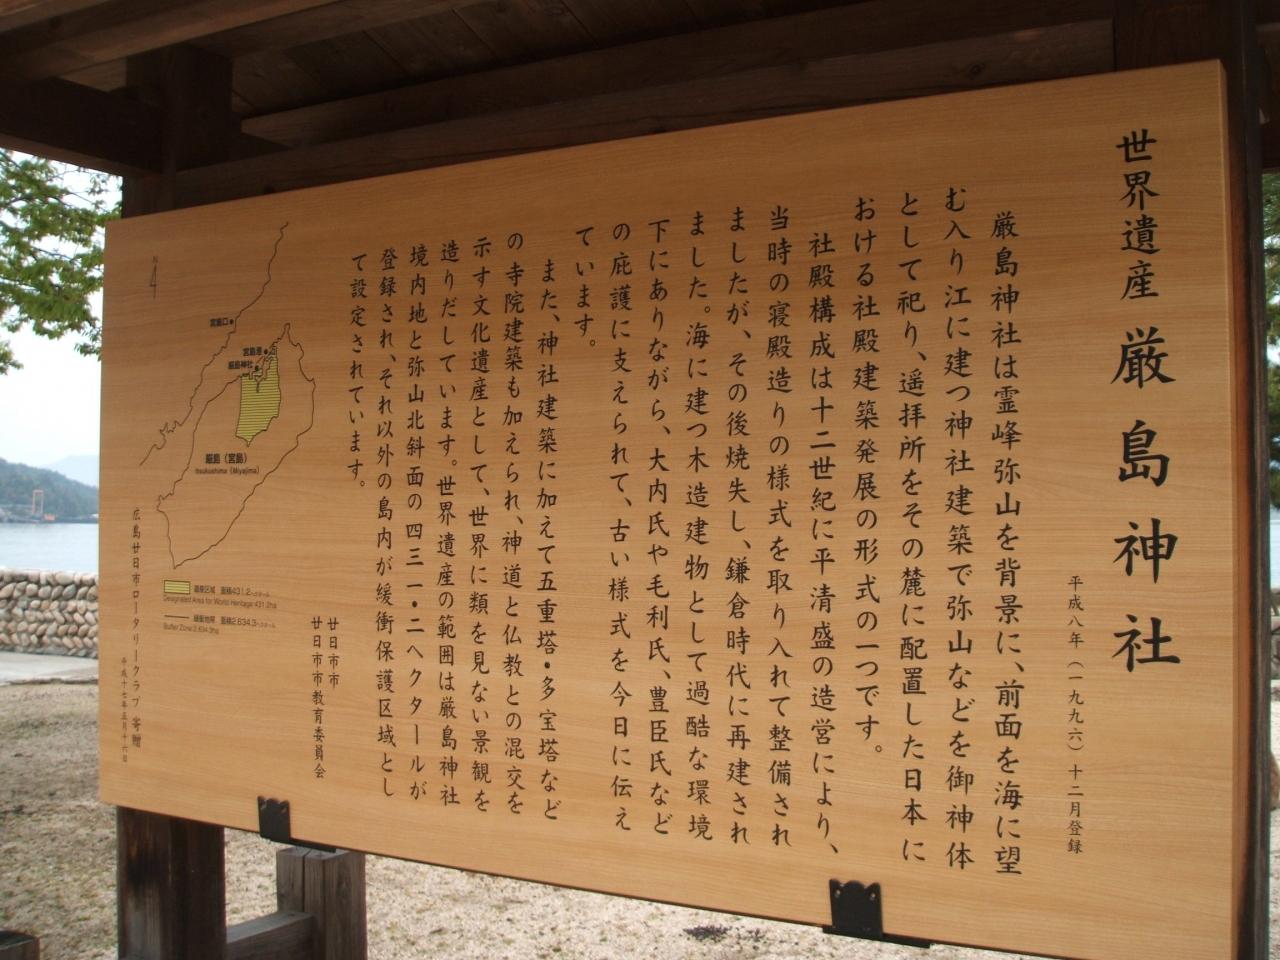 世界遺産 厳島神社
平成八年(一九九六)十二月登録
厳島神社は霊峰弥山を背景に、前面を海に望
む入り江に建つ神社建築で弥山などを御神体
として祀り、遥拝所をその麓に配置した日本に
おける社殿建築発展の形式の一つです。
社殿構成は十二世紀に平清盛の造営により、
当時の寝殿造りの様式を取り入れて整備され
ましたが、その後焼失し、鎌倉時代に再建され
ました。海に建つ木造建物として過酷な環境
下にありながら、大内氏や毛利氏、豊臣氏など
の庇護に支えられて、古い様式を今日に伝え
ています。
また、神社建築に加えて五重塔・多宝塔など
の寺院建築も加えられ、神道と仏教との混交を
示す文化遺産として、世界に類を見ない景観を
造りだしています。世界遺産の範囲は厳島神社
境内地と弥山北斜面の四三一・二ヘクタールが
登録され、それ以外の島内が緩衝保護区域とし
て設定されています。
廿日市市
廿日市市教育委員会
N
宮島口
宮島港
厳島神社
厳島(宮島)
Itsukushima (Miyajima)
遺産区域 面積431.2ヘクタール
Designated Area for World Heritage:431.2ha
緩衝地帯 面積2,634.3ヘクタール
Buffer Zone:2,634.3ha
広島廿日市ロータリークラブ 寄贈
平成十七年五月十六日